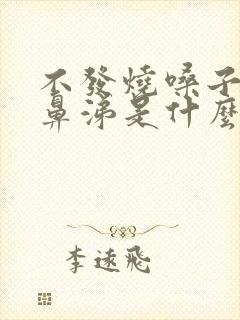 不發燒嗓子
鼻涕是什麼
李遠飛